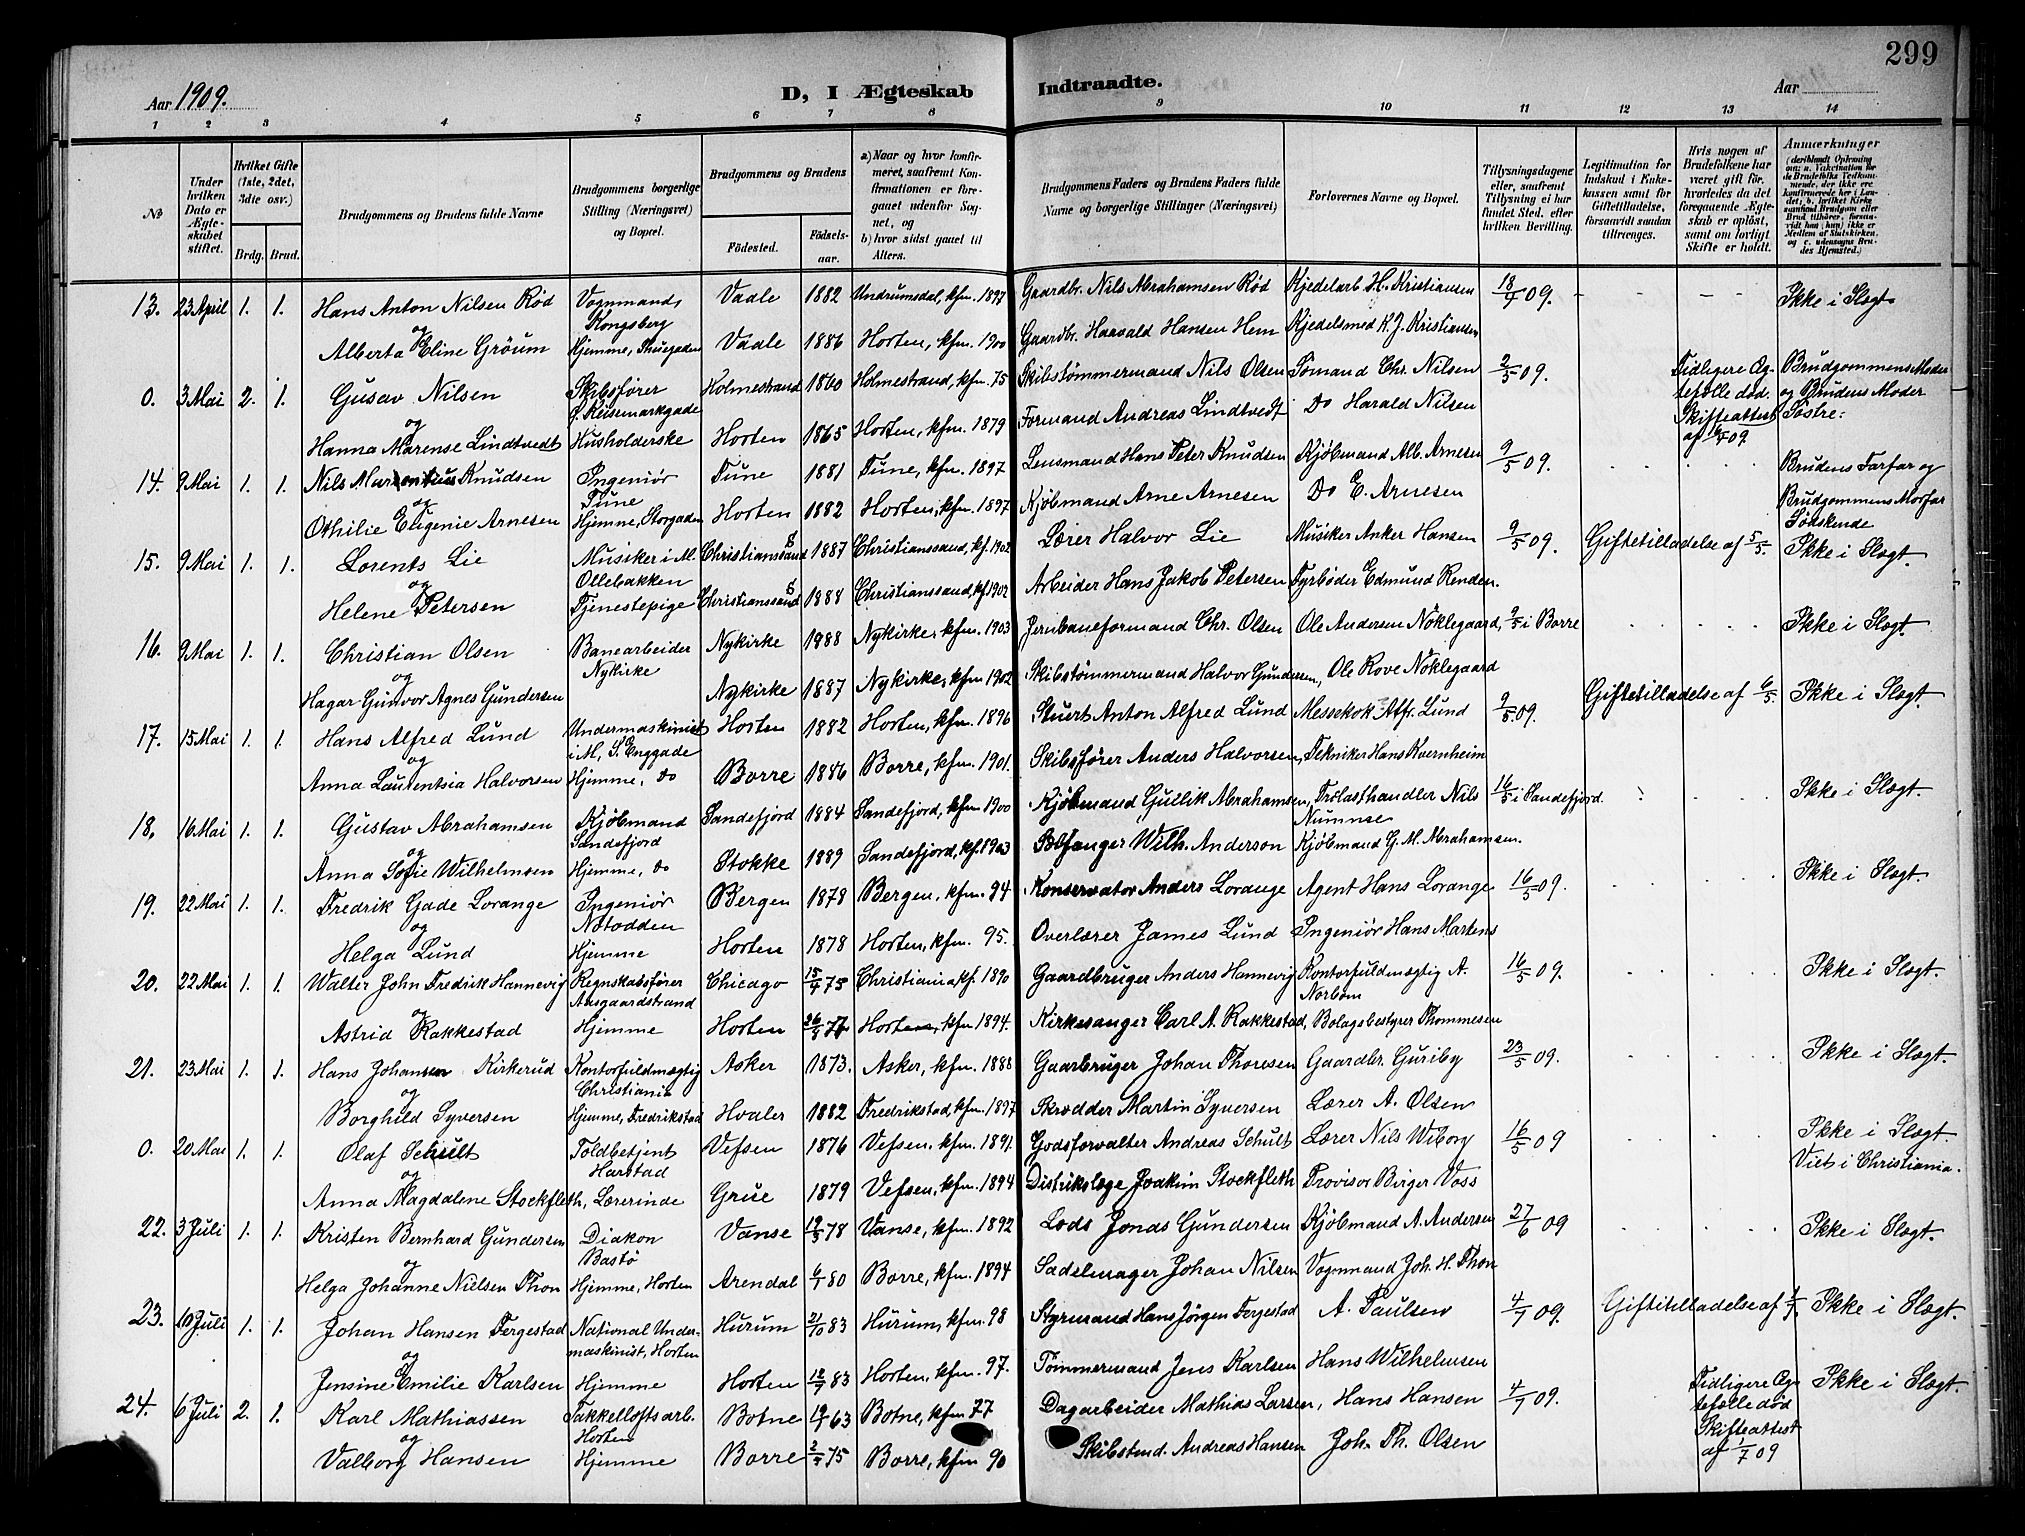 299
Aar 1909.
D, I Ægteskab Indtraadte.
Aar
1 2 3 4 5 6 7 8 9 10 11 12 13 14
No
Under hvilken Dato er Ægteskabet stiftet.
Hvilket Gifte (1ste, 2det, 3dte osv.)
Brdg. Brud.
Brudgommens og Brudens fulde Navne
Brudgommens borgerlige Stilling (Næringsvei) og Bopæl.
Brudgommens og Brudens
Fødested. Fødselsaar.
a) Naar og hvor konfirmeret, saafremt Konfirmationen er foregaaet udenfor Sognet, og
b) hvor sidst gaaet til Alters.
Brudgommens Faders og Brudens Faders fulde Navne og borgerlige Stillinger (Næringsvei)
Forlovernes Navne og Bopæl.
Tillysningsdagene eller, saafremt Tillysning ei har fundet Sted, efter hvilken Bevilling.
Legitimation for Indskud i Enkekassen samt for Giftetilladelse, forsaavidt saadan tiltrænges.
Hvis nogen af Brudefolkene har været gift før, hvorledes da det foregaaende Ægteskab er opløst, samt om lovligt Skifte er holdt.
Anmærkninger
13. 23 April 1. 1. Hans Anton Nilsen Rød Vognmand, Kongsberg Vaale 1882 Undrumsdal, kfm. 1897 Gaardbr. Nils Abrahamsen Rød Kjedelarb. H. Kristiansen 18/4 09. - - - - Ikke i Slægt
og
Alberta Eline Grøum Hjemme, Vaale 1886 Horten, kfm. 1900 Gaardbr. Haavald Hansen Hem Kjedelsmed K. J. Kristiansen
0. 3 Mai 2. 1. Gusav Nilsen Skibsfører Holmestrand 1860 Holmestrand, kfm. 75 Skibstømmermand Nils Olsen Sømand Chr. Nilsen 2/5 09. Tidligere Ægtefælle død. Skifteattest af 09. Brudgommens Moder og Brudens Moder Søstre.
og
Hanna Marense Lindtvedt Husholderske Horten 1865 Horten, kfm. 1879 Formand Andreas Lindtvedt Do Harald Nilsen
14. 9 Mai 1. 1. Nils Knudsen Ingeniør Tune Tune 1881 Tune, kfm. 1897 Lensmand Hans Peter Knudsen Kjøbmand Alb. Arnesen 9/5 09. Brudens Farfar og Brudgommens Morfar Søskende
og
Othilie Eugenie Arnesen Hjemme, Storgaden Horten 1882 Horten, kfm. 1897 Kjøbmand Arne Arnesen Do E. Arnesen
15. 9 Mai 1. 1. Lorents Lie Musiker i M. Ollebakken Christianssand S 1887 Christianssand, kf. 1902 Lærer Halvor Lie Musiker Anker Hansen 9/5 09. Giftetilladelse af 5/5. Ikke i Slægt.
og
Helene Petersen Tjenestepige Christianssand S 1888 Christianssand, kf. 1902 Arbeider Hans Jakob Petersen Fyrbøder Edmund Renden.
16. 9 Mai 1. 1. Christian Olsen Banearbeider Nykirke Nykirke 1888 Nykirke, kfm. 1903 Jernbaneformand Chr. Olsen Ole Andersen Nøklegaard, 9/5 i Borre Ikke i Slægt.
og
Hagar Gunvor Agnes Gundersen Nykirke 1887 Nykirke, kfm. 1902 Skibstømmermand Halvor Gundersen, Ole Rove Nøklegaard
17. 15 Mai 1. 1. Hans Alfred Lund Undermaskinist i M, S. Enggade Horten 1882 Horten, kfm. 1896 Stuert Anton Alfred Lund Messekok Alfr. Lund 9/5 09. Giftetilladelse af 6/5. Ikke i Slægt.
og
Anna Laurentsia Halvorsen Hjemme, Do Borre 1886 Borre, kfm. 1901. Skibsfører Anders Halvorsen, Tekniker Hans Kvernheim
18. 16 Mai 1. 1. Gustav Abrahamsen Kjøbmand Sandefjord Sandefjord 1884 Sandefjord, kfm. 1900 Kjøbmand Gullik Abrahamsen, Trælasthandler Nils 16/5 i Sandefjord. Ikke i Slægt.
og
Anna Sofie Wilhelmsen Hjemme, Do Stokke 1889 Sandefjord, kf. 1903 Sælfanger Wilh. Anderson Kjøbmand G. M. Abrahamsen.
19. 22 Mai 1. 1. Fredrik Gade Lorange Ingeniør Notodden Bergen 1878 Bergen, kfm. 94 Konservator Anders Lorange Agent Hans Lorange 16/5 09. Ikke i Slægt.
og
Helga Lund Hjemme Horten 1878 Horten, kfm. 95. Overlærer James Lund Ingeniør Hans Martens
20. 22 Mai 1. 1. Walter John Fredrik Hannevig Regnskabsfører Aasgaardstrand Chicago 15/4 75 Christiania, kf. 1890 Gaardbruger Anders Hannevig Kontorfuldmægtig A. Norbom 16/5 09. Ikke i Slægt.
og
Astrid Rakkestad Hjemme Horten 77 Horten, kfm 1894. Kirkesanger Carl A. Rakkestad, Bolagsbestyrer Thommesen
21. 23 Mai 1. 1. Hans Johansen Kirkerud Kontorfuldmægtig Christiania Asker 1873. Asker, kfm. 1888 Gaarbruger Johan Thoresen Gaardbr. Guriby 23/5 09. Ikke i Slægt.
og
Borghild Syversen Hjemme, Fredrikstad Hvaler 1882 Fredrikstad, kfm. 1897 Skrædder Martin Syversen Lærer A. Olsen
0. 20 Mai 1. 1. Olaf Schult Toldbetjent Harstad Vefsen 1876 Vefsen, kfm. 1891. Godsforvalter Andreas Schult Lærer Nils Wiborg 16/5 09 Ikke i Slægt. Viet i Christiania.
og
Anna Magdalene Stockfleth, Lærerinde Grue 1879 Vefsen, kfm. 1894 Distrikslæge Joakim Stockfleth Provisor Birger Voss
22. 3 Juli 1. 1. Kristen Bernhard Gundersen Diakon Bastø Vanse 78 Vanse, kfm. 1892 Lods Jonas Gundersen Kjøbmand A. Andersen 27/6 09 Ikke i Slægt.
og
Helga Johanne Nielsen Thon Hjemme, Horten Arendal 6/1 80 Borre, kfm. 1894 Sadelmager Johan Nilsen Vognmand Joh. H. Thon
23. 10 Juli 1. 1. Johan Hansen Fergestad National Undermaskinist, Horten Hurum 21/10 83 Hurum, kfm. 98 Styrmand Hans Jørgen Fergestad A. Paulsen 4/7 09. Giftitilladelse af Ikke i Slægt.
og
Jensine Emilie Karlsen Hjemme Horten 12/7 83 Horten, kfm. 97. Tømmermand Jens Karlsen Hans Wilhelmsen
24. 6 Juli 2. 1. Karl Mathiassen Takkelloftsarb. Horten Botne 63 Botne, kfm 77 Dagarbeider Mathias Larsen, Hans Hansen 4/7 09. Tidligere Ægtefælle død Skifteattest af 1/7 09 Ikke i Slægt.
og
Valborg Hansen Hjemme Borre 75 Borre, kfm 90 Skibstmd. Andreas Hansen Joh. Th. Olsen